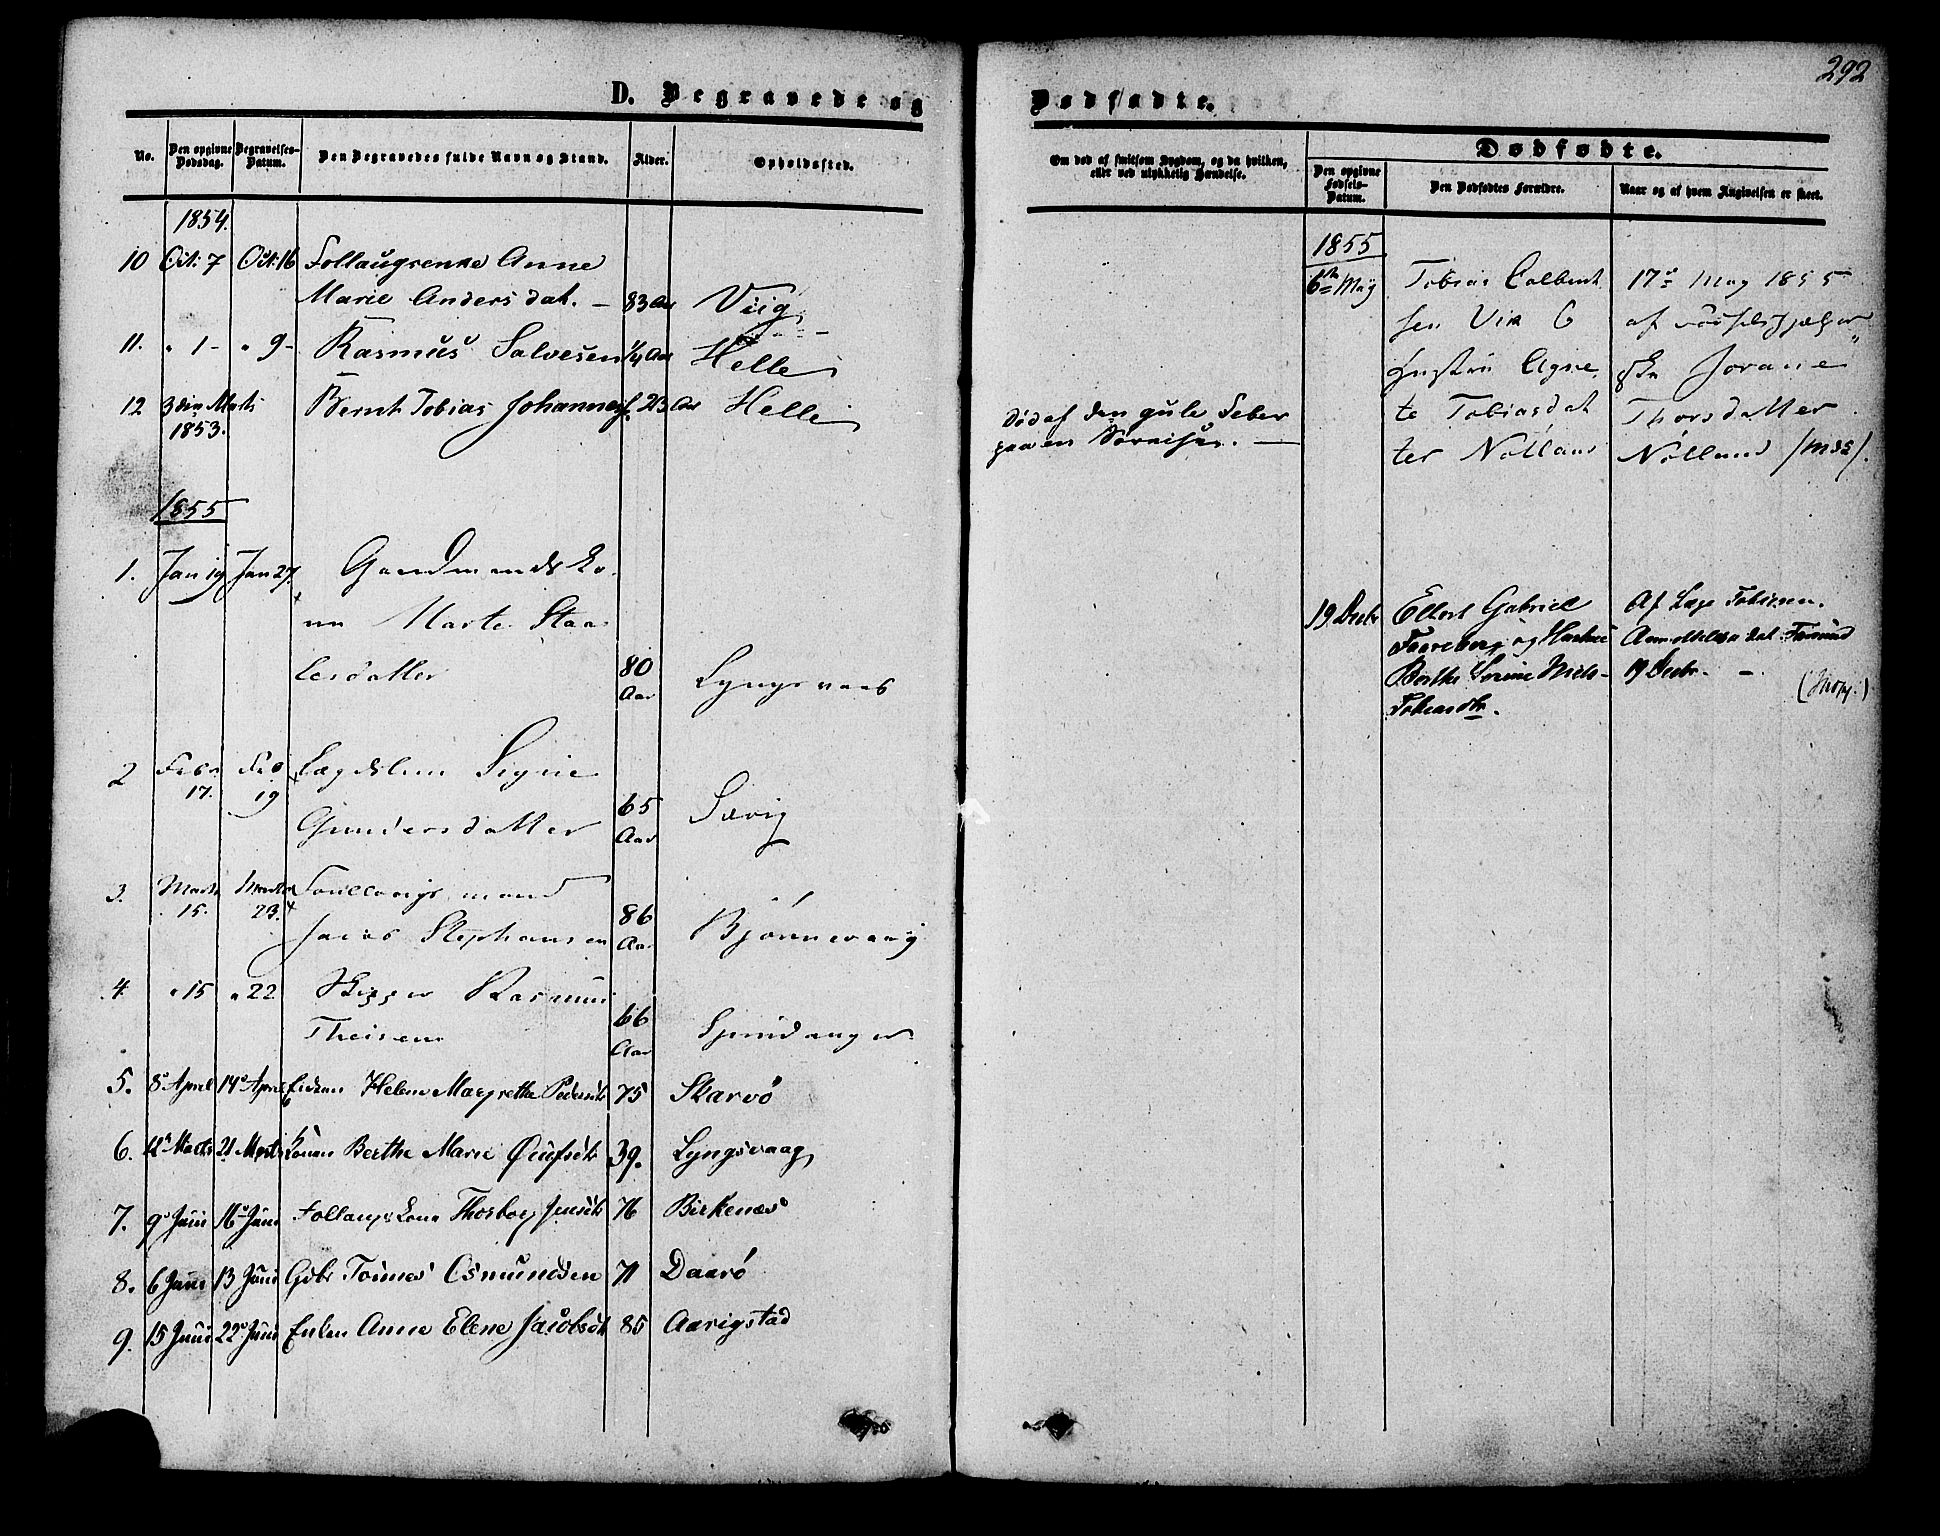 292
D. Begravede og Dødfødte.
No.
Den opgivne Dødsdag.
Begravelses-Datum.
Den Begravedes fulde Navn og Stand.
Alder.
Opholdssted.
Om død af smitsom Sygdom, og da hvilken,
eller ved ulykkelig Hændelse.
Dødfødte.
Den opgivne Fødsels-Datum.
Den Dødfødtes Forældre.
Naar og af hvem Angivelsen er skeet.
1854.
10 Oct: 7 Oct: 16 Follaugsenke Anne
Marie Andersdat. – 83 Aar Viig
11. " 1 - " 9 - Rasmus Salvesen 1/4 Aar Helle
12 3die Marts 1853. Bernt Tobias Johannes 23 Aar Helle
Død af den gule Feber
paa en
1855
1. Jan 19 Jan 27. Gaardmandsko-
ne Marte Staa-
lesdatter 80 Aar Lyngsvaag
2 Febr 17. Feb 19 Lægdslem Signe
Gundersdatter 65 Aar Sævig
3. Marts 15. Marts 23. mand
Jacob Stephansen 86 Aar Bjørnevaag
4. " 15 " 22 Skipper Rasmus
Theisen 66 Aar Spindanger
5. 8 April 14 April Enken Helene Margrethe Pedersdt 75 Skarvø
6. 12 Marts 21 Marts Konen Berthe Marie 39. Lyngsvaag
7. 9 Juni 16 Juni Follaugskone Thorborg Jensdt 76 Birkenæs
8. 6 Juni 13 Juni Gbr Tønnes Osmundsen 71 Daarø
9. 15 Juni 22 Juni Enken Anne Elene Jacobsdt 85 Aavigstad
1855
6te May Tobias Calbent
sen Vik &
Hustru Agne
te Tobiasdat
ter Nøtland
17 May 1855
af
Jorane
Thorsdatter
Nøtland
19 Decbr Ellert Gabriel
og Hustrue
Berthe Serine Niels
Tobiasdtr.
Af Lage Tobiesen.
19 Decbr. –